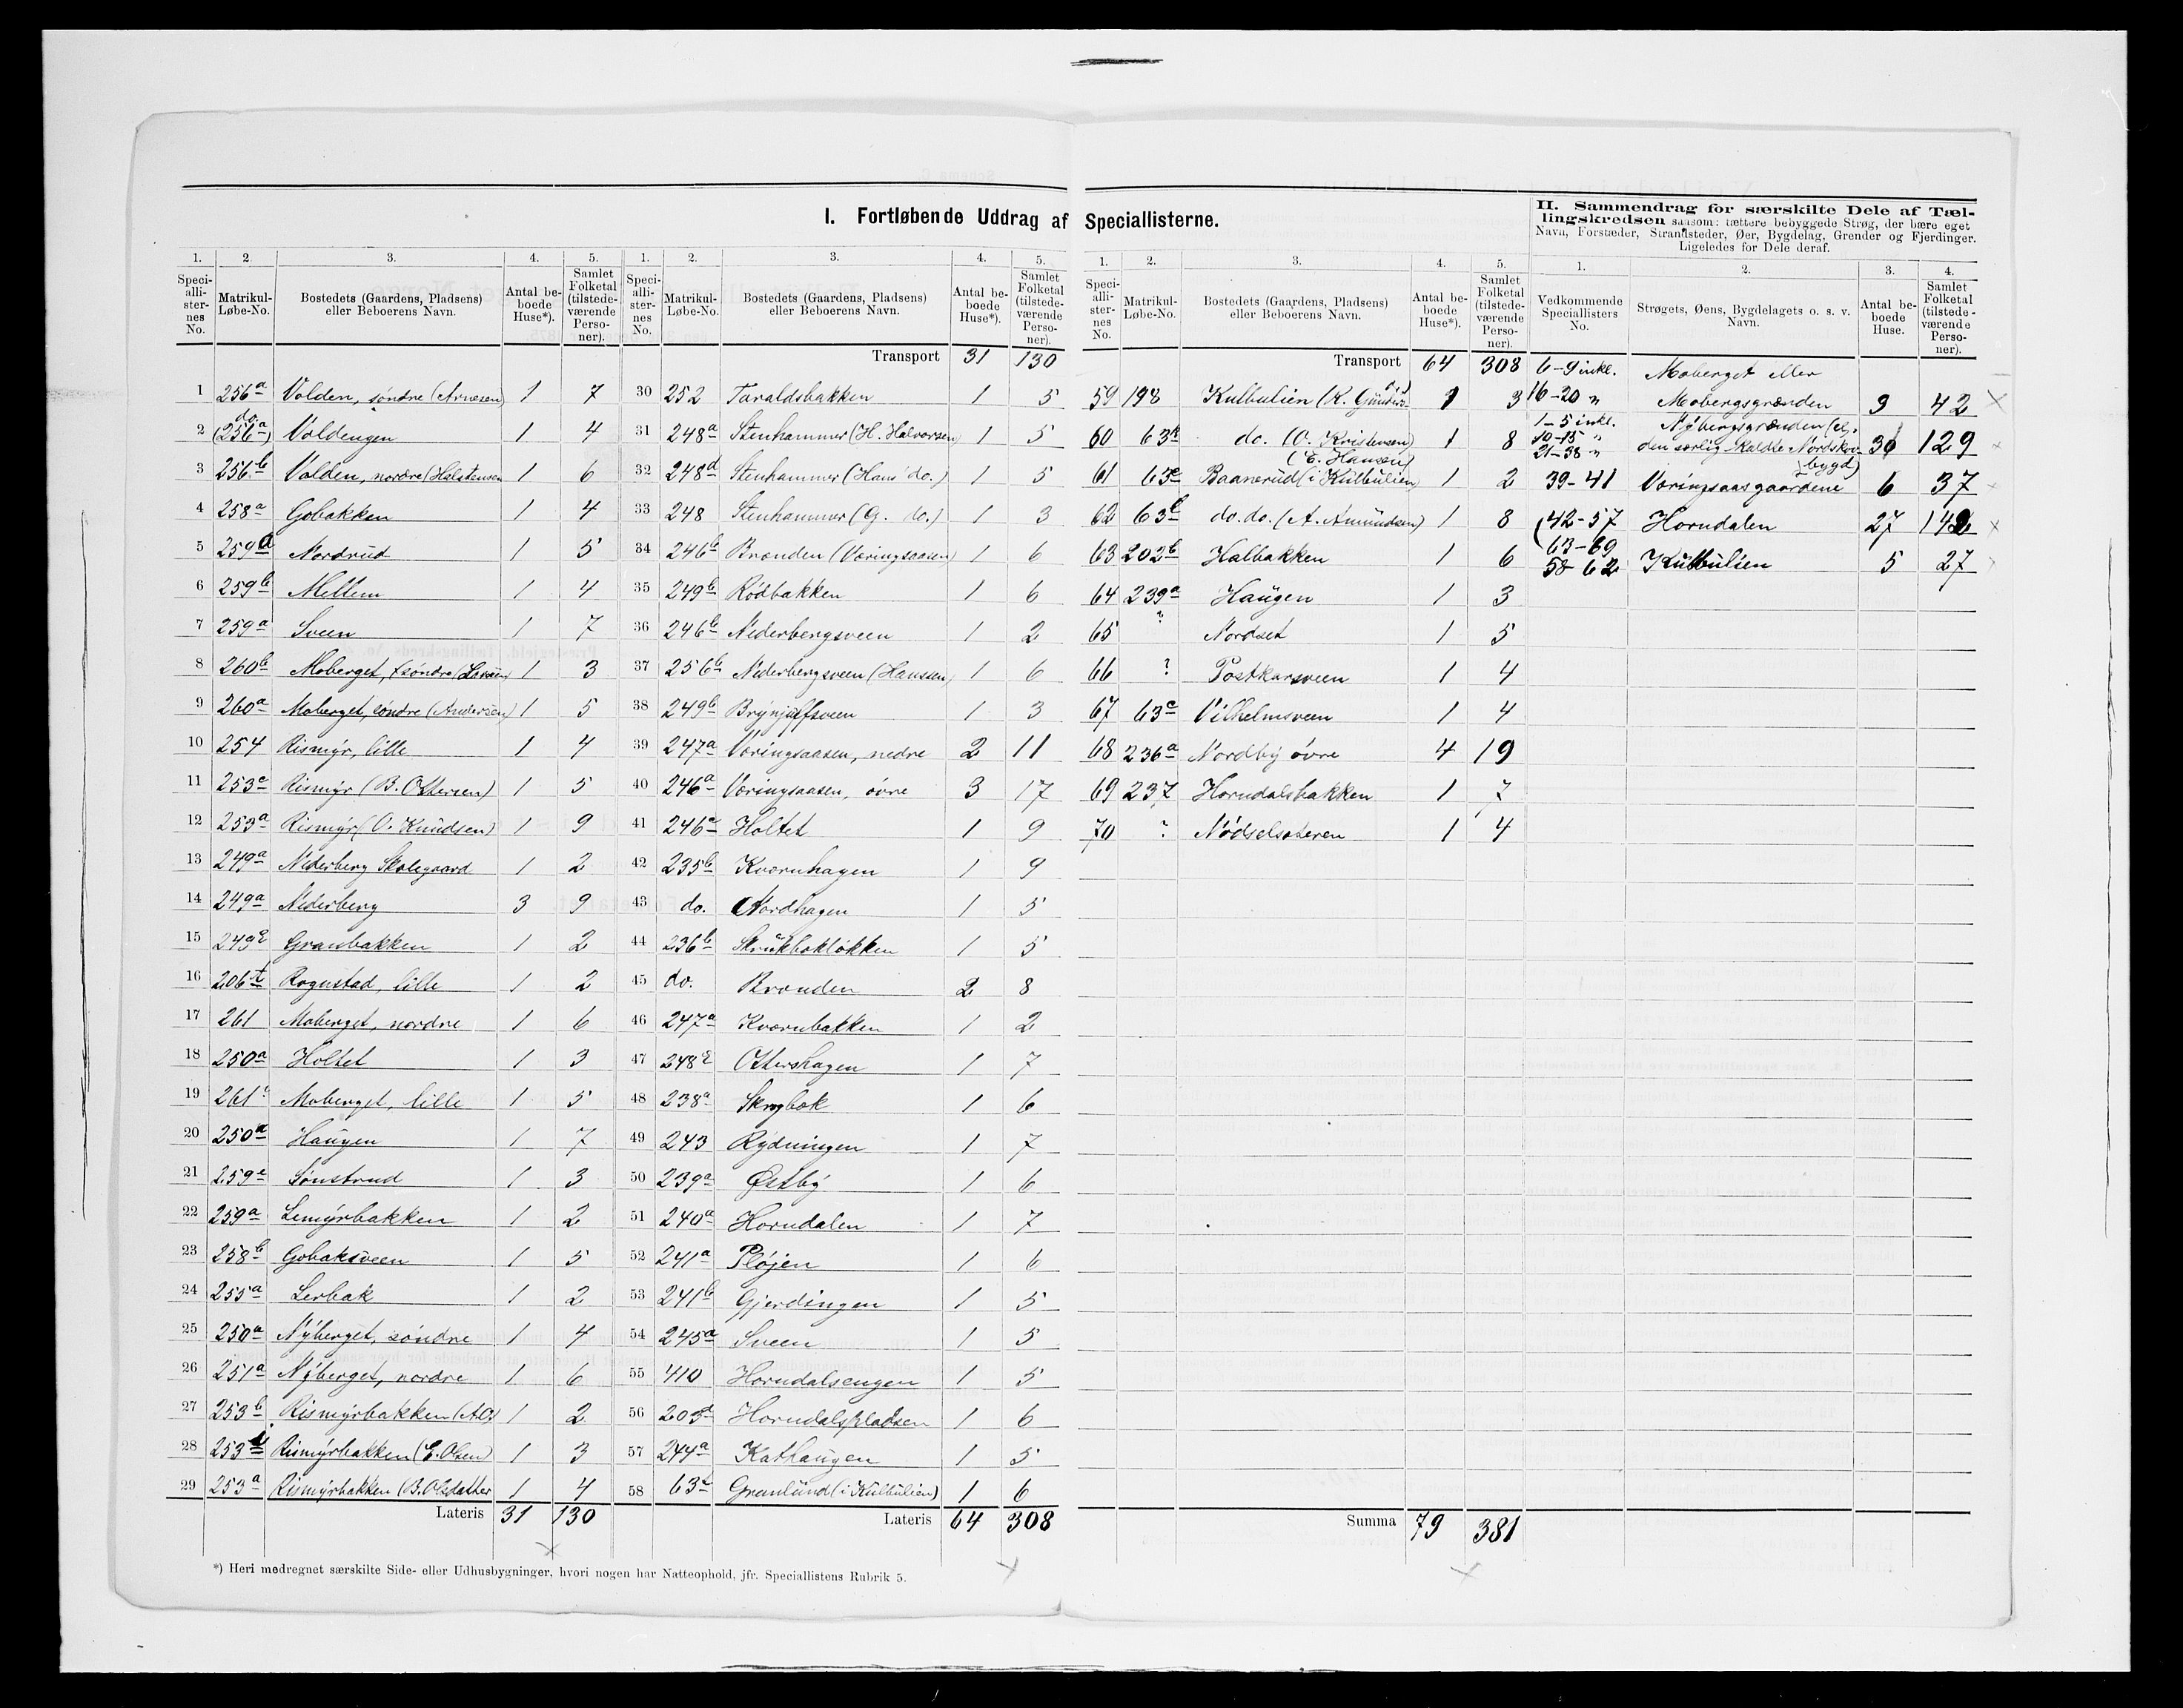 I. Fortløbende Uddrag af Speciallisterne.
II. Sammendrag for særskilte Dele af Tæl-
lingskredsen saasom: tættere bebyggede Strøg, der bære eget
Navn, Forstæder, Strandsteder, Øer, Bygdelag, Grender og Fjerdinger.
Ligeledes for Dele deraf.
1. 2. 3. 4. 5.
Speci-alli-ster-nes No. Matrikul-Løbe-No. Bostedets (Gaardens, Pladsens) eller Beboerens Navn. Antal be-boede Huse*). Samlet Folketal (tilstede-værende Perso-ner).
1 256a Volden, søndre (Arnesen) 1 7
2 do. (256a) Voldengen 1 4
3 256b Volden, nordre (Halstensen 1 6
4 258a Gobakken 1 4
5 259d Nordrud 1 5
6 259b Mellem 1 4
7 259a Sveen 1 7
8 260b Moberget, søndre 1 3
9 260a Moberget, søndre (Andersen) 1 5
10 254 Rismÿr, lille 1 4
11 253c Rismÿr (B. Ottersen) 1 5
12 253a Rismÿr (O. Knudsen) 1 9
13 249a Nederberg Skolegaard 1 2
14 249a Nederberg 3 9
15 249e Gransbakken 1 2
16 206t Rognstad, lille 1 2
17 261 Moberget, nordre 1 6
18 250a Holtet 1 3
19 261 Moberget, lille 1 5
20 250a Haugen 1 7
21 259e Sønstrud 1 3
22 259a Lemÿrbakken 1 2
23 258b Gobaksveen 1 5
24 255a Lerbak 1 2
25 250a Nÿberget, søndre 1 4
26 251a Nÿberget, nordre 1 6
27 253b Rismÿrbakken 1 2
28 253 Rismÿrbakken (E. Olsen) 1 3
29 253a Rismÿrbakken (B. Olsdatter 1 4
Lateris 31 130
1. 2. 3. 4. 5.
Speci-alli-ster-nes No. Matrikul-Løbe-No. Bostedets (Gaardens, Pladsens) eller Beboerens Navn. Antal be-boede Huse*). Samlet Folketal (tilstede-værende Perso-ner).
Transport 31 130
30 252 Taraldsbakken 1 5
31 248a Stenhammer (H. Halvorsen) 1 5
32 248d Stenhammer (Hans do.) 1 5
33 248 Stenhammer (G. do.) 1 3
34 246b Brænden (Væringsaasen) 1 6
35 249b Rødbakken 1 6
36 246b Nederbergsveen 1 2
37 256b Nederbergsveen (Hanssen) 1 6
38 249b Brÿnjulfsveen 1 3
39 247a Væringsaasen, nedre 2 11
40 246a Væringsaasen, øvre 3 17
41 246c Holtet 1 9
42 235b Kvernhagen 1 9
43 do. Nordhagen 1 5
44 236b Skrukbakløkken 1 5
45 do. Brænden 2 8
46 247a Kværnbakken 1 2
47 248e Ottershagen 1 7
48 238a Skrogbak 1 6
49 243 Rÿdningen 1 7
50 239a Østbÿ 1 6
51 240a Horndalen 1 7
52 241a Pløjen 1 6
53 241b Gjerdingen 1 5
54 245a Sveen 1 5
55 410 Horndalsengen 1 5
56 203d Horndalspladsen 1 6
57 244a Kathaugen 1 5
58 63 Granlund (i Kulbulien) 1 6
Lateris 64 308
1. 2. 3. 4. 5.
Speci-alli-ster-nes No. Matrikul-Løbe-No. Bostedets (Gaardens, Pladsens) eller Beboerens Navn. Antal be-boede Huse*). Samlet Folketal (tilstede-værende Perso-ner).
Transport 64 308
59 198 Kulbulien 1 3
60 63 do. (O. Kristensen) 1 8
61 63e Baanerud (i Kulbulien) (E. Hansen) 1 2
62 63 do. do. (A. Amundsen) 1 8
63 202b Halbakken 1 6
64 239a Haugen 1 3
65 ? Nordset 1 5
66 ? Postkarsveen 1 4
67 63c Vilhelmsveen 1 4
68 236a Nordbÿ øvre 4 19
69 237 Horndalsbakken 1 7
70 ? Nødselsæteren 1 4
Summa 79 381
1. 2. 3. 4.
Vedkommende Speciallisters No. Strøgets, Øens, Bygdelagets o. s. v. Navn. Antal be-boede Huse. Samlet Folketal (tilstede-værende Perso-ner).
6-9 inkl. Moberget eller
16-20 " Mobergsgrænden 9 42
1-5 inkl. Nÿbergsgrænden (el.
10-15 " den særlig kaldte Nordsko-
21-38 " bygd) 30 129
39-41 Væringsaasgaardene 6 37
42-57 Horndalen 27 142
63-69
58-62 Kulbulien 5 27
*) Heri medregnet særskilte Side- eller Udhusbygninger, hvori nogen har Natteophold, jfr. Speciallistens Rubrik 5.